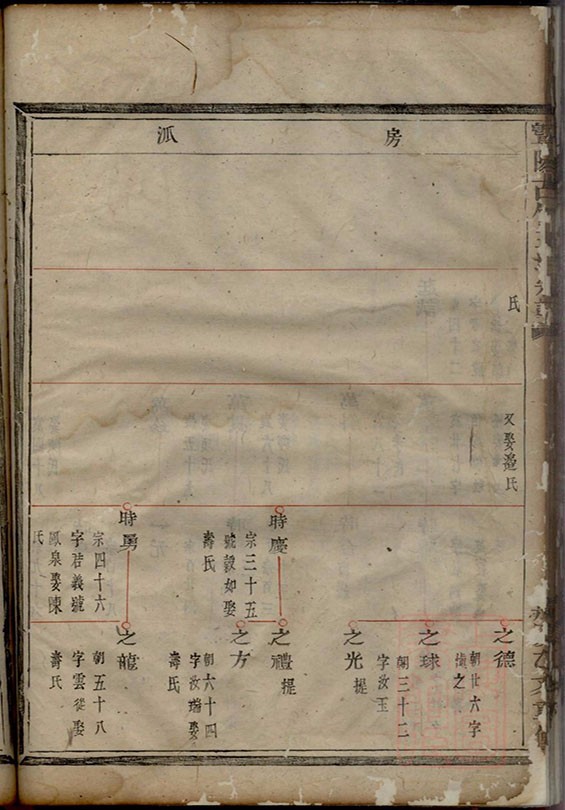 房
派
氏
又娶馮氏
之德
朝廿六字
之
之球
朝三十二
字汝玉
之光
提
時慶
宗三十五
號毅如娶
壽氏
之禮
提
之方
朝六十四
字汝瑞娶
壽氏
時勇
宗四十六
字若義號
鳳泉娶陳
氏
之龍
朝五十八
字雲從娶
壽氏